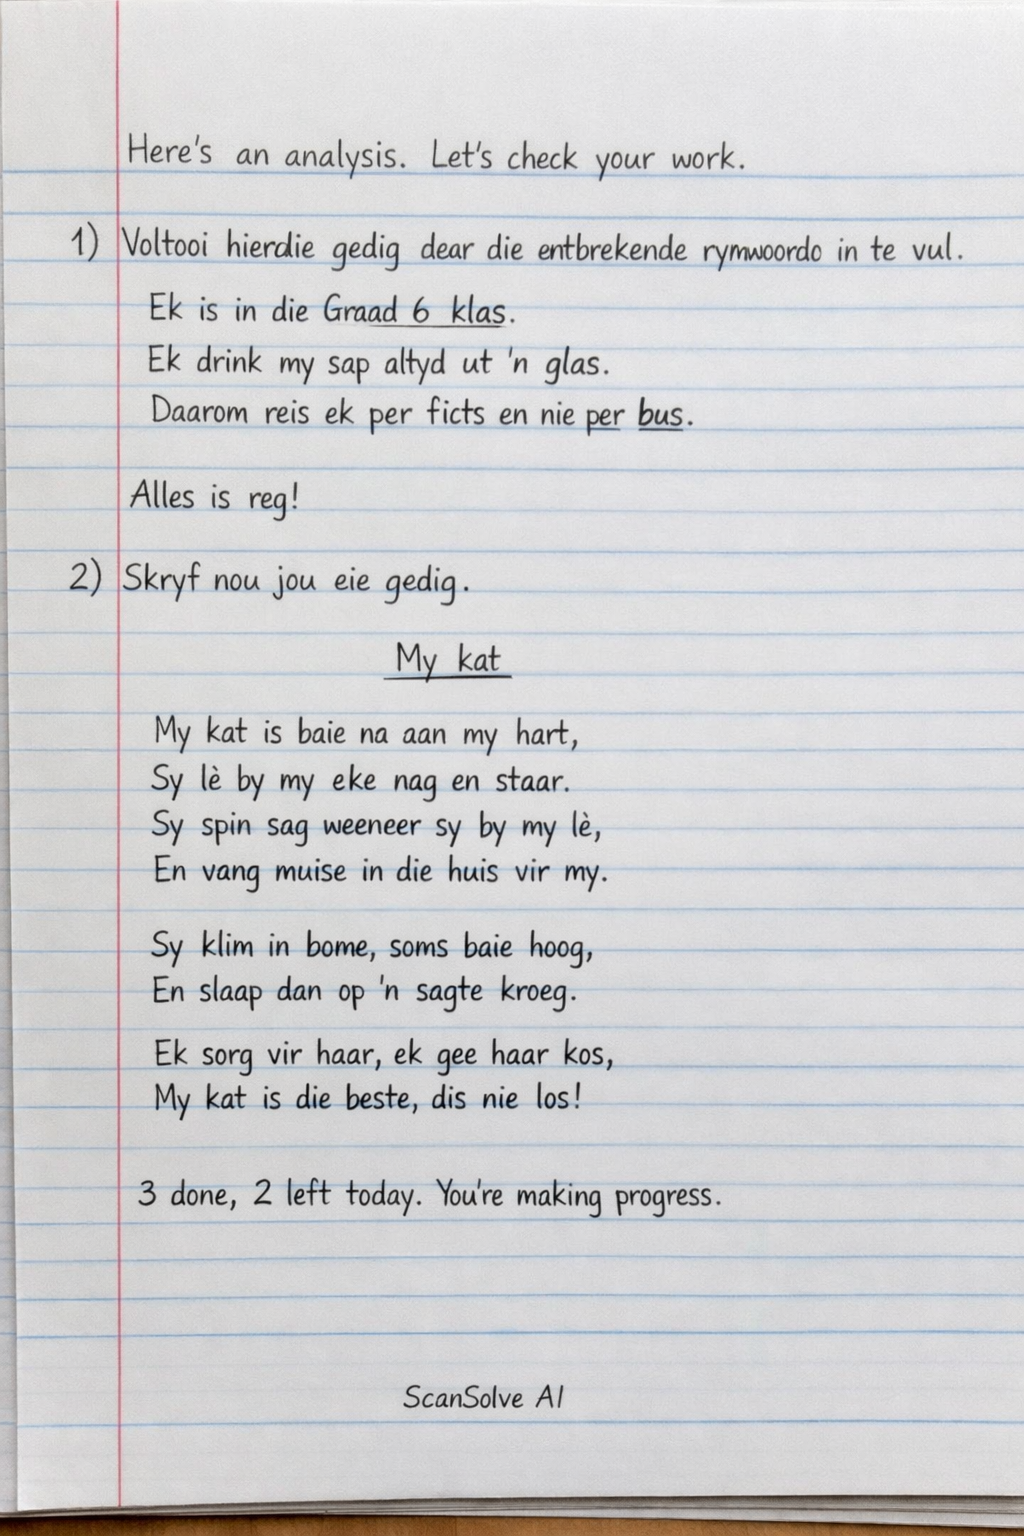 Here's an analysis. Let's check your work.
1) Voltooi hierdie gedig dear die entbrekende rymwoordo in te vul.
Ek is in die Graad 6 klas.
Ek drink my sap altyd ut 'n glas.
Daarom reis ek per ficts en nie per bus.
Alles is reg!
2) Skryf nou jou eie gedig.
My kat
My kat is baie na aan my hart,
Sy lè by my eke nag en staar.
Sy spin sag weeneer sy by my lè,
En vang muise in die huis vir my.
Sy klim in bome, soms baie hoog,
En slaap dan op 'n sagte kroeg.
Ek sorg vir haar, ek gee haar kos,
My kat is die beste, dis nie los!
3 done, 2 left today. You're making progress.
ScanSolve AI